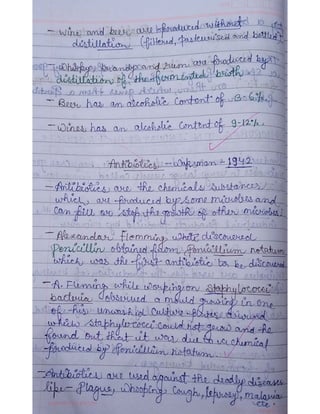 - Wine and beer are produced without
distillation (filtered, pasteurised and bottled)
- Whisky, brandy and rum are produced by
distillation of the fermented broth
- Beer has an alcoholic content of 3-6%.
- Wines has an alcoholic content of 9-12%.
Antibiotics - Waksman - 1942
- Antibiotics are the chemicals substances
which are produced by some microbes and
can kill or stop the growth of other microbes.
- Alexandar Flemming who discovered
penicillin obtained from penicillium notatum
which was the first antibiotic to be discovered
- A. Fleming while working on staphylococci
bacteria observed a mould growing in one
of his unwashed culture plates around
which staphylococci could not grow and he
found out that it was due to a chemical
produced by penicillium notatum.
- Antibiotics are used against the deadly diseases
like - Plague, whooping cough, leprosy, malaria
etc.